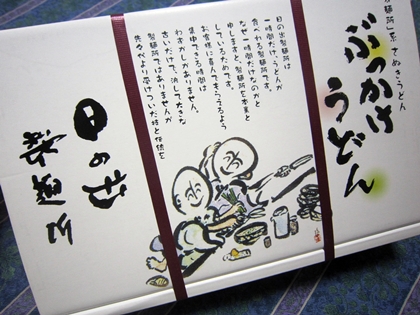 製麺所」系 さぬきうどん
ぶっかけ
うどん
日の出製麺所は
一時間だけ、うどんが
食べれる製麺所です。
なぜ一時間だけなのかと
申しますと、製麺所を本業と
しているためです。
お客様に喜んでもらえるよう
集中できる時間は
わずかしかありません。
古いだけで、決して大きな
製麺所ではありませんが
先々代より受けついだ技と伝統を
日の出
製麺所